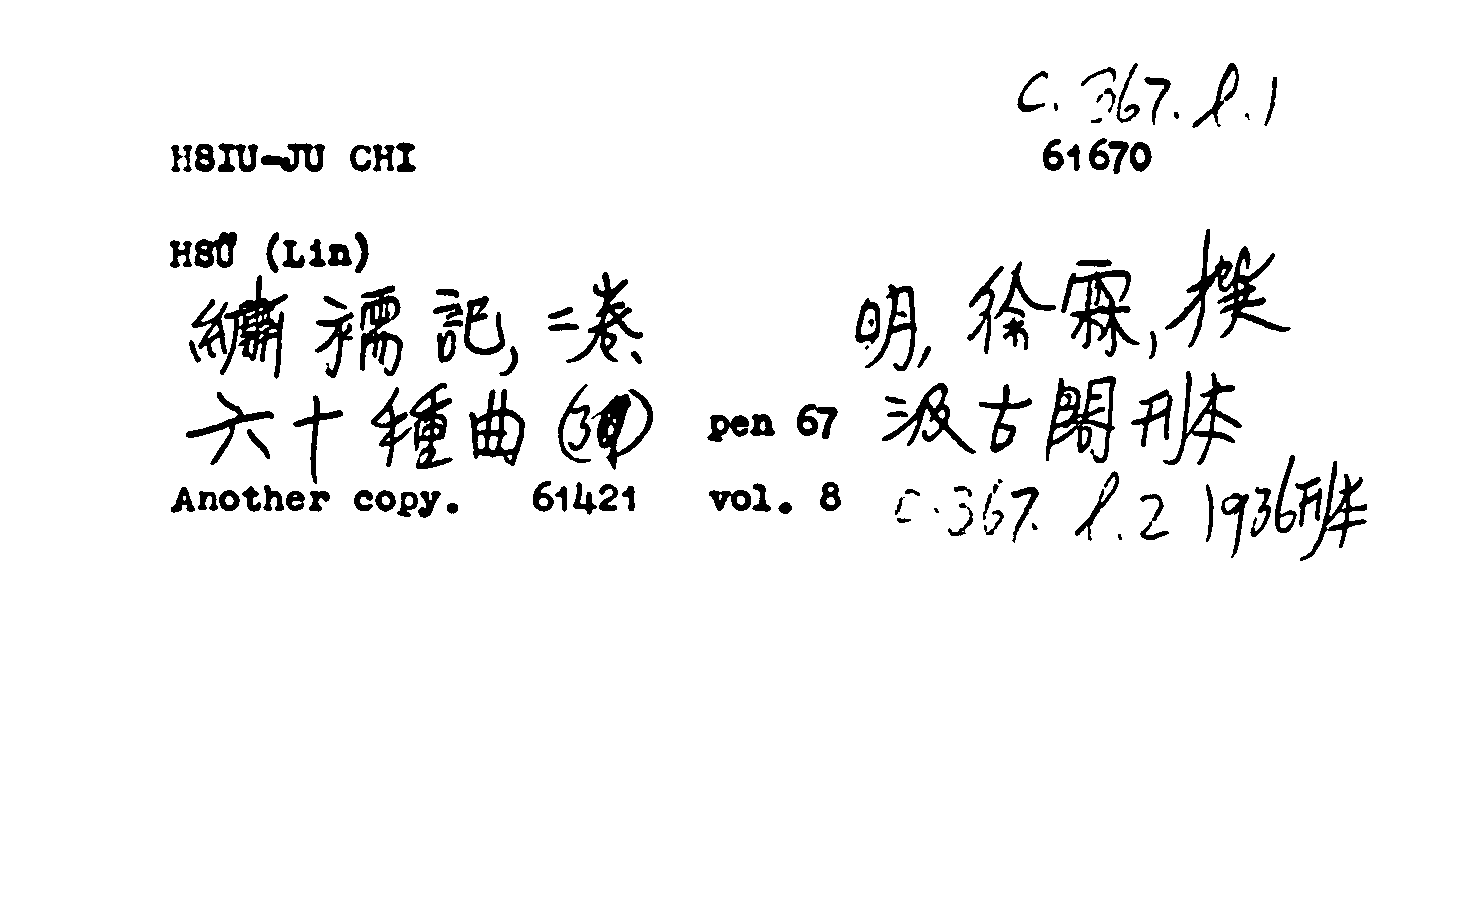 C. 367. l. 1
HSIU-JU CHI 61670
HSÜ (Lin)
繡襦記, 二卷、 明, 徐霖, 撰
六十種曲 pen 67 汲古閣刊本
Another copy. 61421 vol. 8 C. 367. l. 2 1936刊本